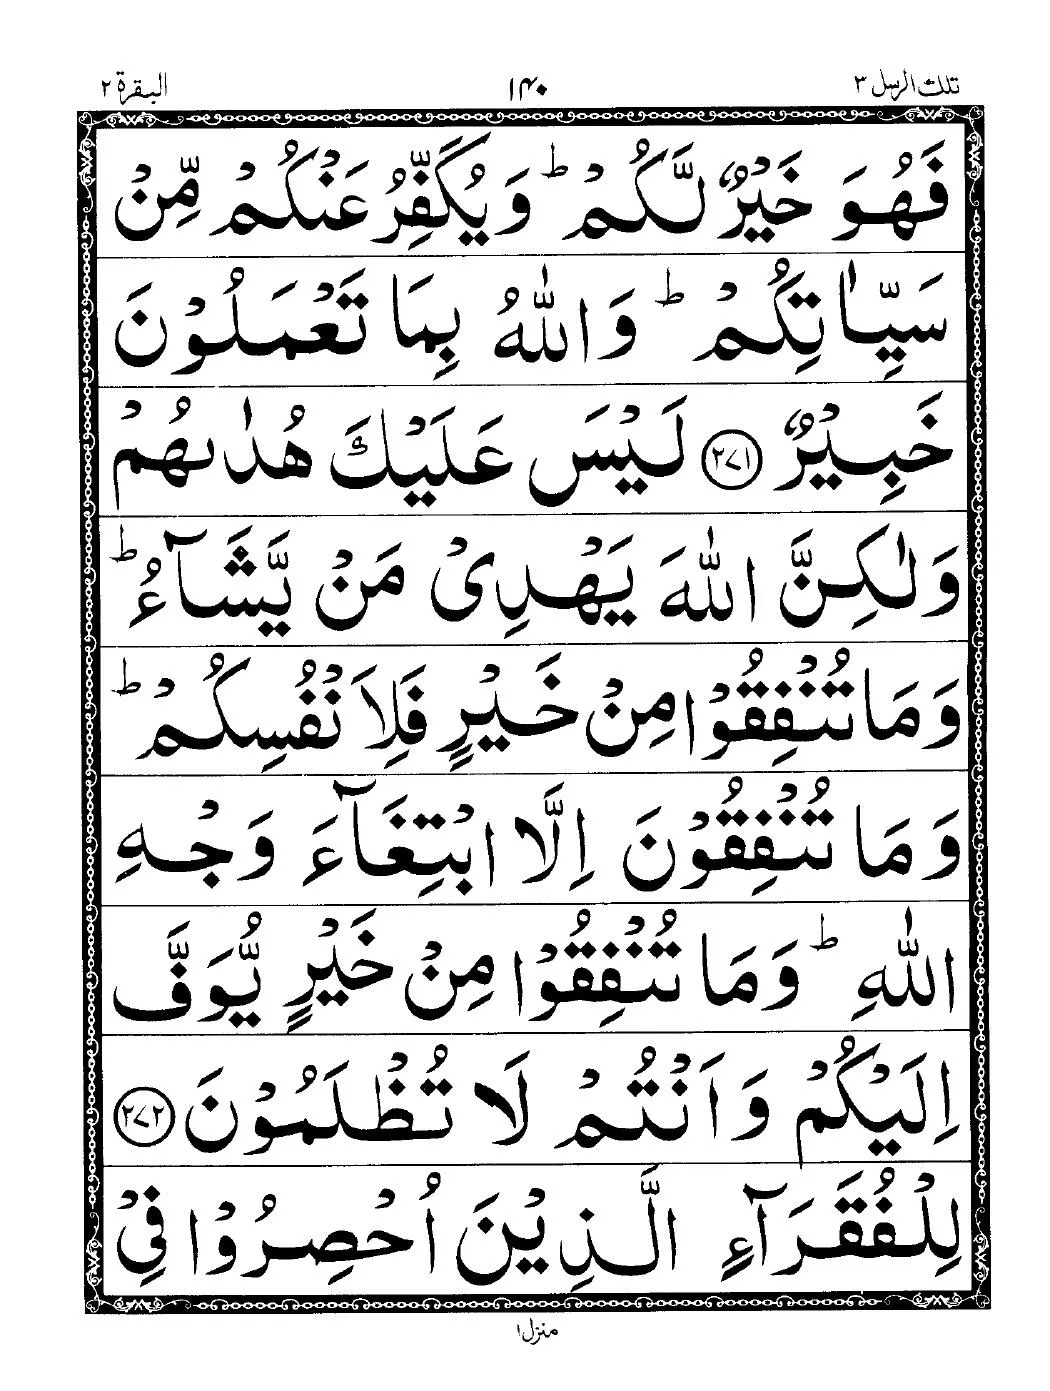 تلك الرسل ٣ ١٤٠ البقرة ٢
فَهُوَ خَيْرٌ لَّكُمْ ؕ وَيُكَفِّرُ عَنْكُمْ مِّنْ
سَيِّاٰتِكُمْ ؕ وَاللّٰهُ بِمَا تَعْمَلُوْنَ
خَبِيْرٌ ﴿۲۷۱﴾ لَيْسَ عَلَيْكَ هُدٰىهُمْ
وَلٰكِنَّ اللّٰهَ يَهْدِىْ مَنْ يَّشَآءُ ؕ
وَمَا تُنْفِقُوْا مِنْ خَيْرٍ فَلِاَنْفُسِكُمْ ؕ
وَمَا تُنْفِقُوْنَ اِلَّا ابْتِغَآءَ وَجْهِ
اللّٰهِ ؕ وَمَا تُنْفِقُوْا مِنْ خَيْرٍ يُّوَفَّ
اِلَيْكُمْ وَاَنْتُمْ لَا تُظْلَمُوْنَ ﴿۲۷۲﴾
لِلْفُقَرَآءِ الَّذِيْنَ اُحْصِرُوْا فِىْ
منزل ١